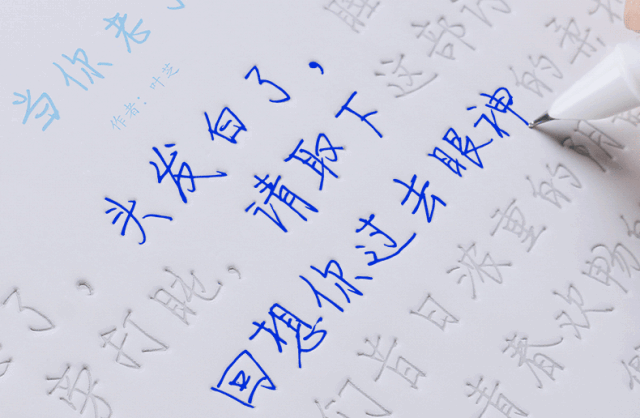 当你老了
作者：叶芝
了，头发白了，睡
旁打盹，请取下这部诗
回想你过去眼神的柔和
们昔日浓重的阴
青春欢畅的